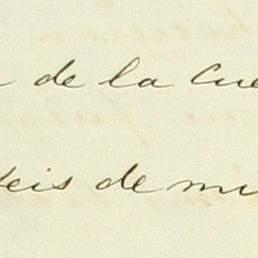 de la Cue
seis de mi